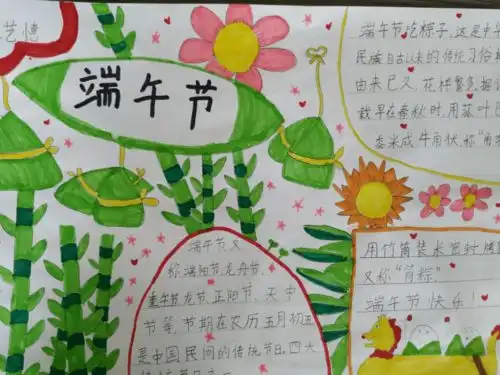 艺情
端午节
端午节吃粽子,这是中华
民族自古以来的传统习俗
由来已又,花样繁多,据记
载早在春秋时,用菰叶包
黍米成牛角状,称"角
端午节又
称端阳节,龙舟节,
重午节龙节,正阳节、天中
节等,节期在农历五月初五
是中国民间的传统节日,四大
用竹筒装米密封烤
又称"筒粽"
端午节快乐!